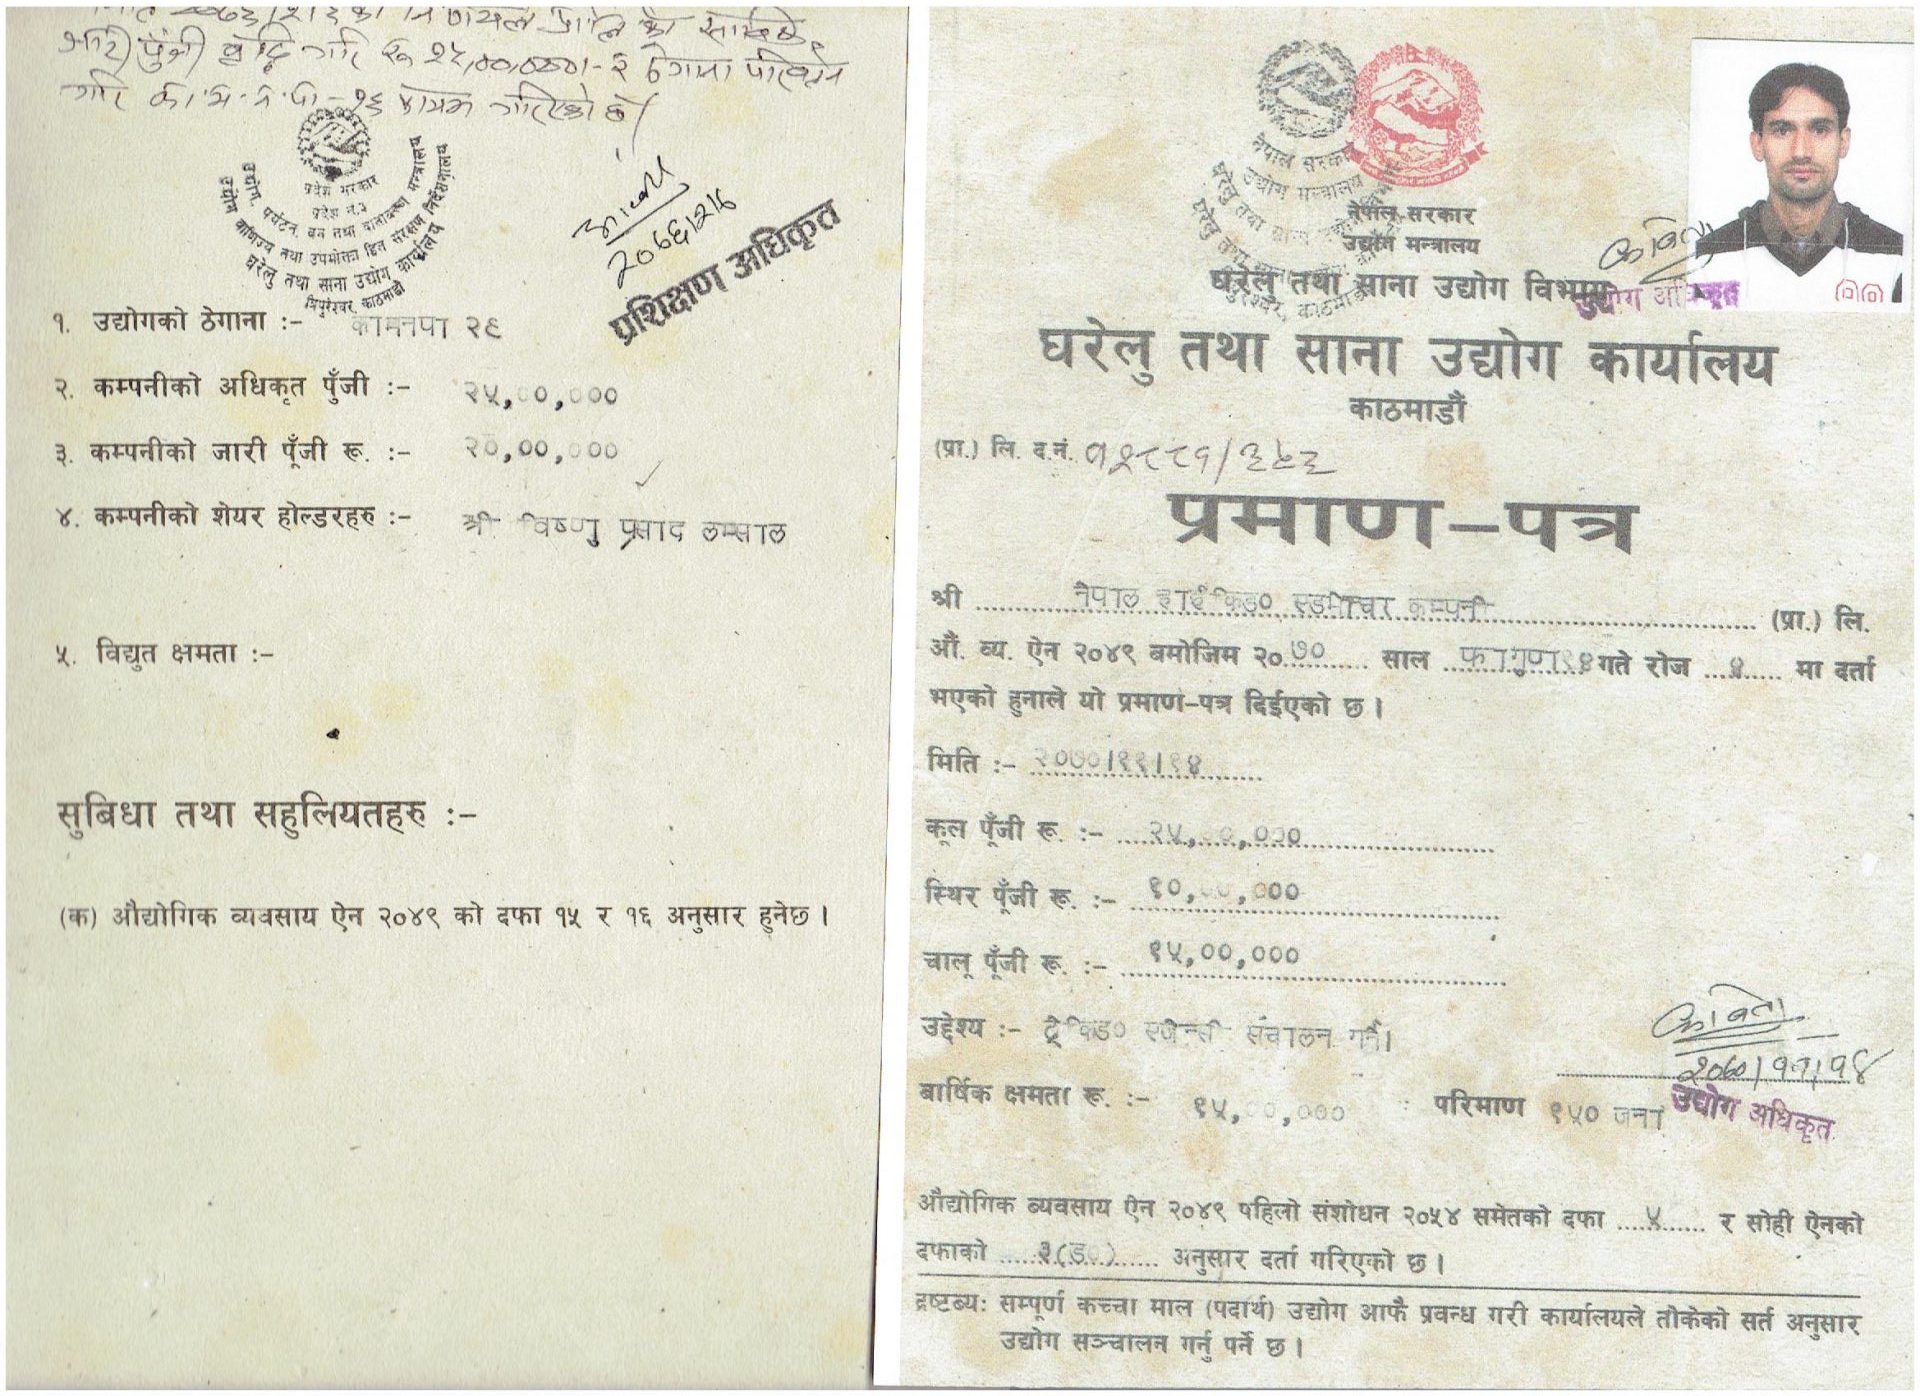 भारी पुँजी वृद्धि गरि रू
गरि का.म.न.पा.-२६ कायम गरिएको छ।
प्रदेश सरकार
प्रदेश नं. ३
उद्योग, पर्यटन, वन तथा वातावरण मन्त्रालय
उद्योग वाणिज्य तथा उपभोक्ता हित संरक्षण निर्देशनालय
घरेलु तथा साना उद्योग कार्यालय
त्रिपुरेश्वर, काठमाडौं
२०७६।२।६
प्रशिक्षण अधिकृत
१. उद्योगको ठेगाना :- कामनपा २९
२. कम्पनीको अधिकृत पुँजी :- २५,००,०००
३. कम्पनीको जारी पूँजी रू. :- २०,००,०००
४. कम्पनीको शेयर होल्डरहरु :- श्री विष्णु प्रसाद लम्साल
५. विद्युत क्षमता :-
सुबिधा तथा सहुलियतहरु :-
(क) औद्योगिक व्यवसाय ऐन २०४९ को दफा १५ र १६ अनुसार हुनेछ ।
नेपाल सरकार
उद्योग मन्त्रालय
नेपाल सरकार
उद्योग मन्त्रालय
घरेलु तथा साना उद्योग विभाग
कविता
उद्योग अधिकृत
घरेलु तथा साना उद्योग कार्यालय
काठमाडौं
(प्रा.) लि. द.नं. १२८८१/३५३
प्रमाण-पत्र
श्री नेपाल हाईकिङ० एडभेन्चर कम्पनी (प्रा.) लि.
औ. व्य. ऐन २०४९ बमोजिम २०७० साल फागुण १४ गते रोज ४ मा दर्ता
भएको हुनाले यो प्रमाण-पत्र दिईएको छ ।
मिति :- २०७०।११।१४
कूल पूँजी रू. :- २५,००,०००
स्थिर पूँजी रू. :- १०,००,०००
चालू पूँजी रू. :- १५,००,०००
उद्देश्य :- ट्रेकिङ० एजेन्सी संचालन गर्ने।
कविता
२०७०।११।१४
उद्योग अधिकृत
बार्षिक क्षमता रू. :- १५,००,००० परिमाण १५० जना
औद्योगिक व्यवसाय ऐन २०४९ पहिलो संशोधन २०५४ समेतको दफा ५ र सोही ऐनको
दफाको ३(ङ०) अनुसार दर्ता गरिएको छ ।
द्रष्टब्य: सम्पूर्ण कच्चा माल (पदार्थ) उद्योग आफै प्रवन्ध गरी कार्यालयले तोकेको सर्त अनुसार
उद्योग सञ्चालन गर्नु पर्ने छ ।